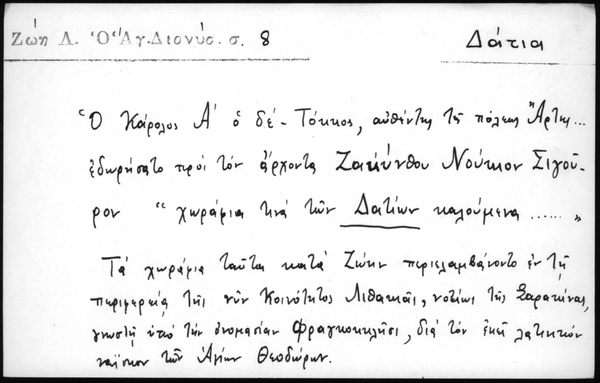 Ζώη Λ. Ὁ Ἅγ. Διονύσ. σ. 8
Δάτια
Ὁ Κάρολος Α' ὁ δέ-Τόκκος, αὐθέντης τῆς πόλεως Ἄρτης...
ἐδωρήσατο πρός τόν ἄρχοντα Ζακύνθου Νούκιον Σιγοῦ-
ρον "χωράφια τινά τῶν Δατίων καλούμενα ......"
Τά χωράφια ταῦτα κατά Ζώην περιελαμβάνοντο ἐν τῇ
περιφερείᾳ τῆς νῦν Κοινότητος Λιθακιᾶς, νοτίως τῆς Σαρακίνας,
γνωστῆ ὑπό τήν ὀνομασίαν Φραγκοκκλῆσι, διά τόν ἐκεῖ λατινικόν
ναΐσκον τῶν Ἁγίων Θεοδώρων.